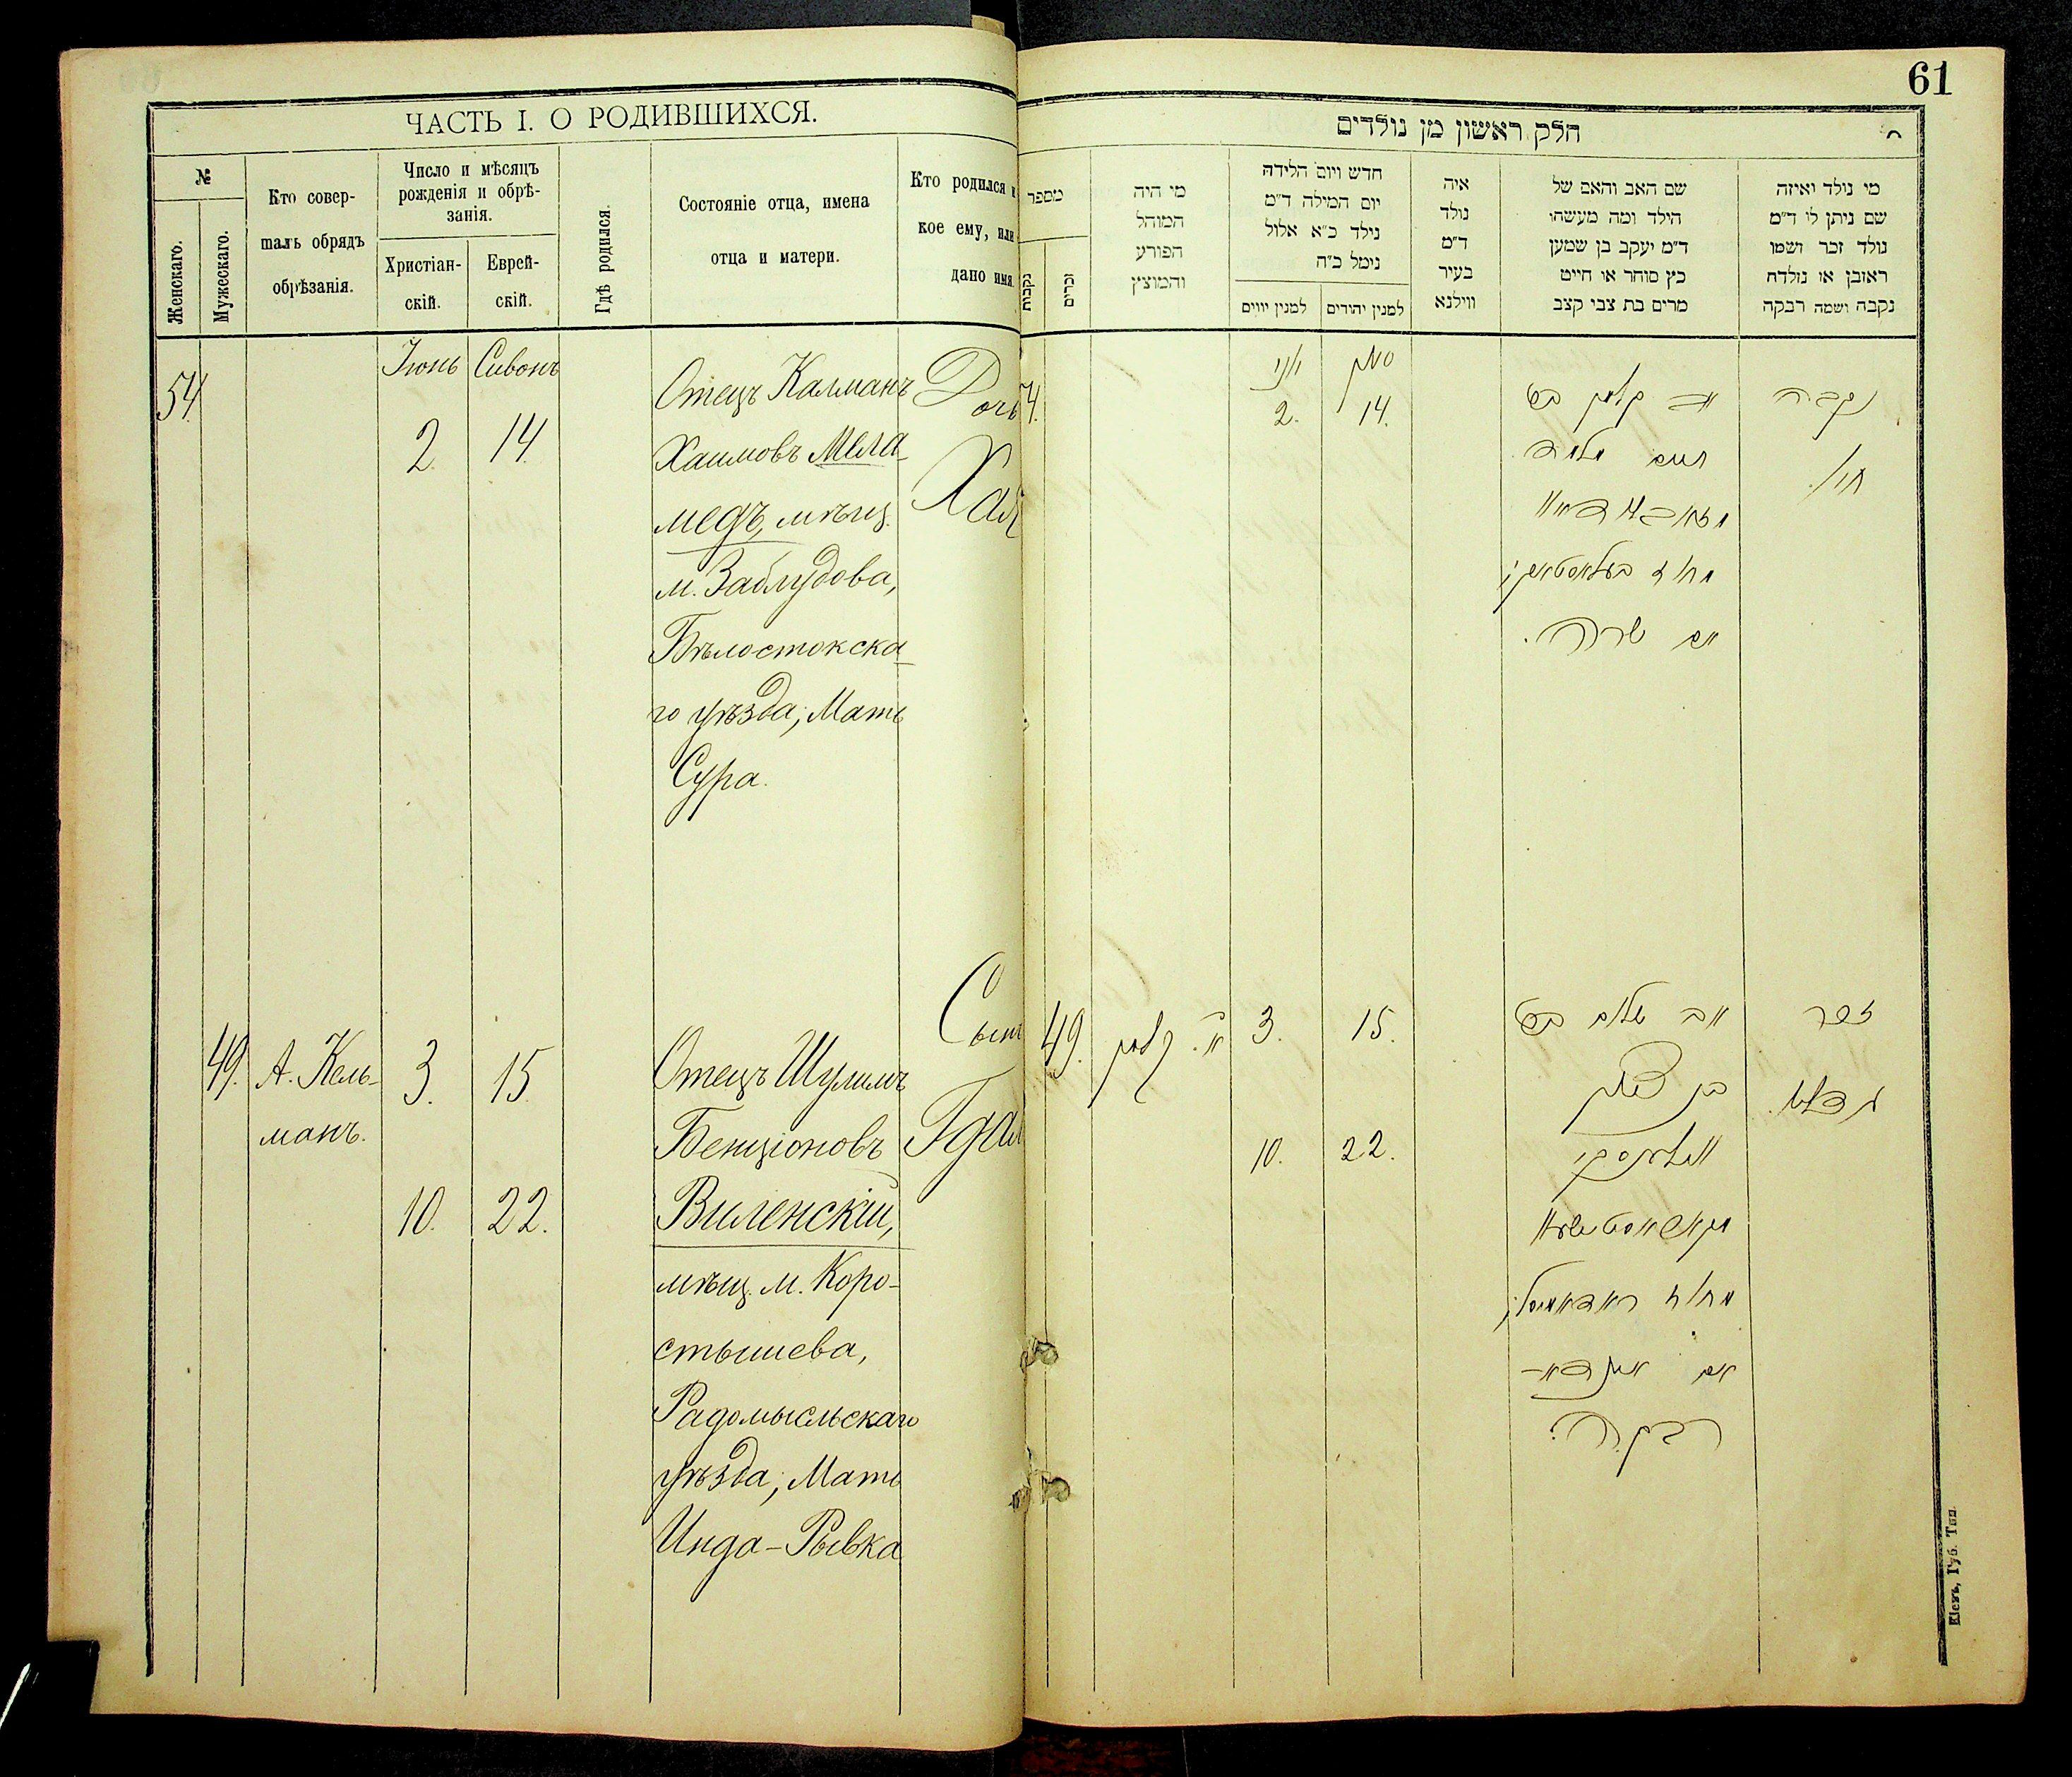 61
ЧАСТЬ I. О РОДИВШИХСЯ.
№
Женскаго.
Мужескаго.
Кто совер-
шалъ обрядъ
обрѣзанія.
Число и мѣсяцъ
рожденія и обрѣ-
занія.
Христіан-
скій.
Еврей-
скій.
Гдѣ родился.
Состояніе отца, имена
отца и матери.
Кто родился и
кое ему, или
дано имя.
54.
Іюнь
Сивонъ
2.
14.
Отецъ Калманъ
Хаимовъ Мела-
медъ, мѣщ.
м. Заблудова,
Бѣлостокска-
го уѣзда; Мать
Сура.
Дочь
Хая
49.
А. Кель-
манъ.
3.
15.
10.
22.
Отецъ Шулимъ
Бенціоновъ
Виленскій,
мѣщ. м. Коро-
стышева,
Радомысльскаго
уѣзда; Мать
Инда-Рывка
Сынъ
Гдал
חלק ראשון מן נולדים
מספר
נקבות
זכרים
מי היה
המוהל
הפורע
והמוצץ
חדש ויום הלידה
יום המילה ד״מ
נילד כ״א אלול
נימל כ״ה
למנין יווים
למנין יהודים
איה
נולד
ד״מ
בעיר
ווילנא
שם האב והאם של
הילד ומה מעשהו
ד״מ יעקב בן שמען
כץ סוחר או חייט
מרים בת צבי קצב
מי נולד ואיזה
שם ניתן לו ד״מ
נולד זכר ושמו
ראובן או נולדה
נקבה ושמה רבקה
4.
יוני
סיון
2.
14.
אב קלמן בר׳
חיים מלמד
אם שרה.
נקבה
חי׳.
49.
א. קלמן
3.
15.
10.
22.
אב שלום בר׳
בן ציון
ווילענסקי
רבקה.
זכר
Кіевъ, Губ. Тип.